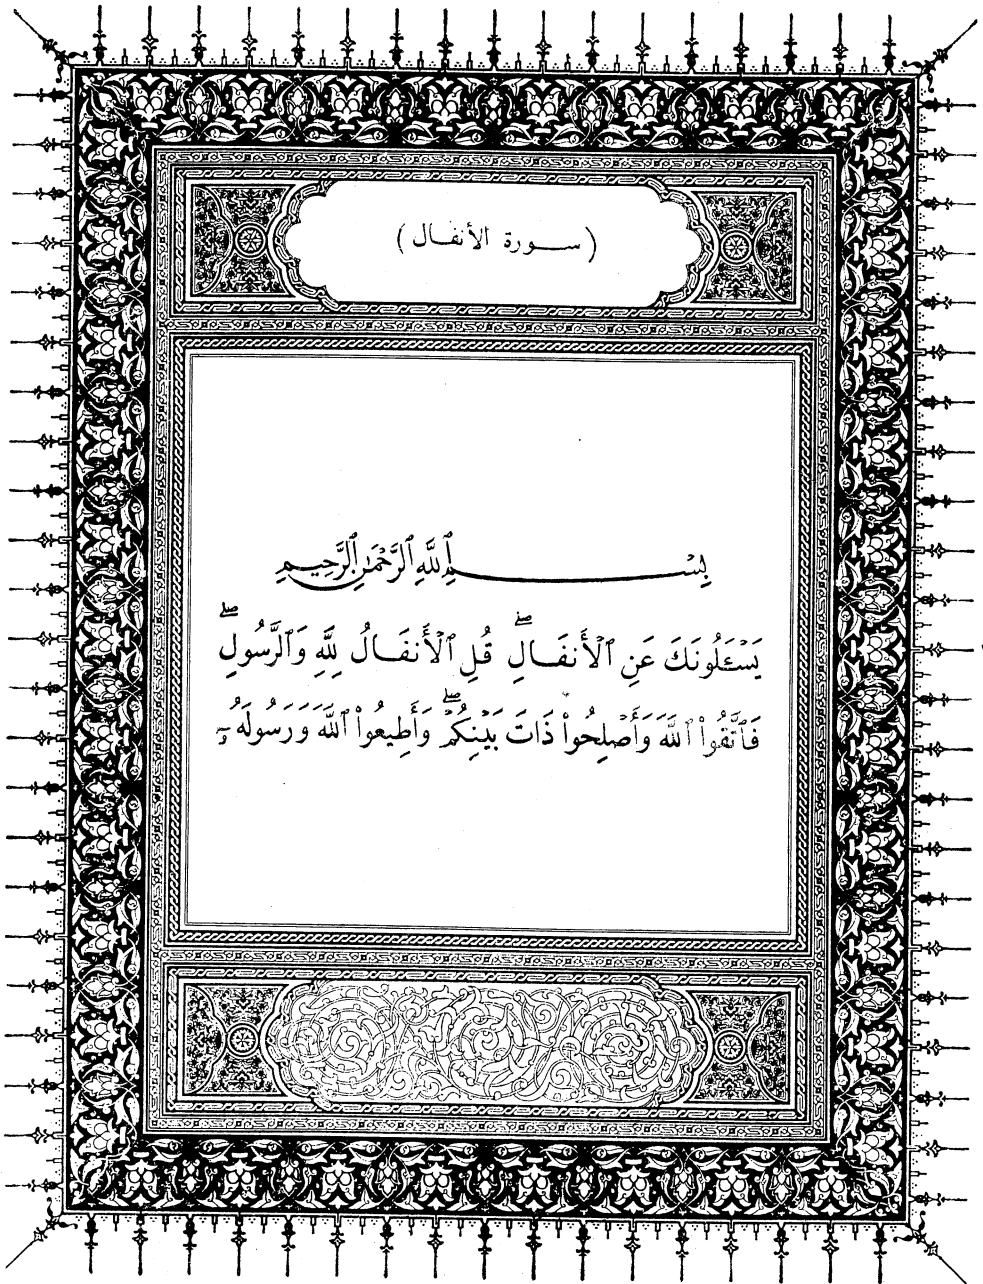 (ســورة الأنفــال)
بِسْــــــمِ ٱللَّهِ ٱلرَّحْمَٰنِ ٱلرَّحِيمِ
يَسْـَٔلُونَكَ عَنِ ٱلْأَنفَــالِۖ قُلِ ٱلْأَنفَــالُ لِلَّهِ وَٱلرَّسُولِۖ
فَٱتَّقُوا۟ ٱللَّهَ وَأَصْلِحُوا۟ ذَاتَ بَيْنِكُمْۖ وَأَطِيعُوا۟ ٱللَّهَ وَرَسُولَهُۥٓ